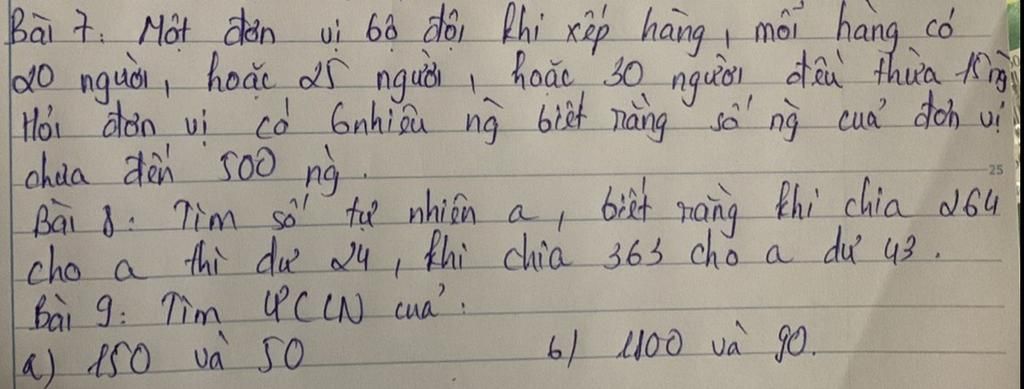 Bài 7: Một đơn vị bộ đội khi xếp hàng, mỗi hàng có
20 người, hoặc 25 người, hoặc 30 người đều thừa 15 ng
Hỏi đơn vị có bnhiêu ng biết rằng số ng của đơn vị
chưa đến 500 ng.
25
Bài 8: Tìm số tự nhiên a, biết rằng khi chia 264
cho a thì dư 24, khi chia 363 cho a dư 43.
Bài 9: Tìm ƯCLN của:
a) 150 và 50 b) 1100 và 90.